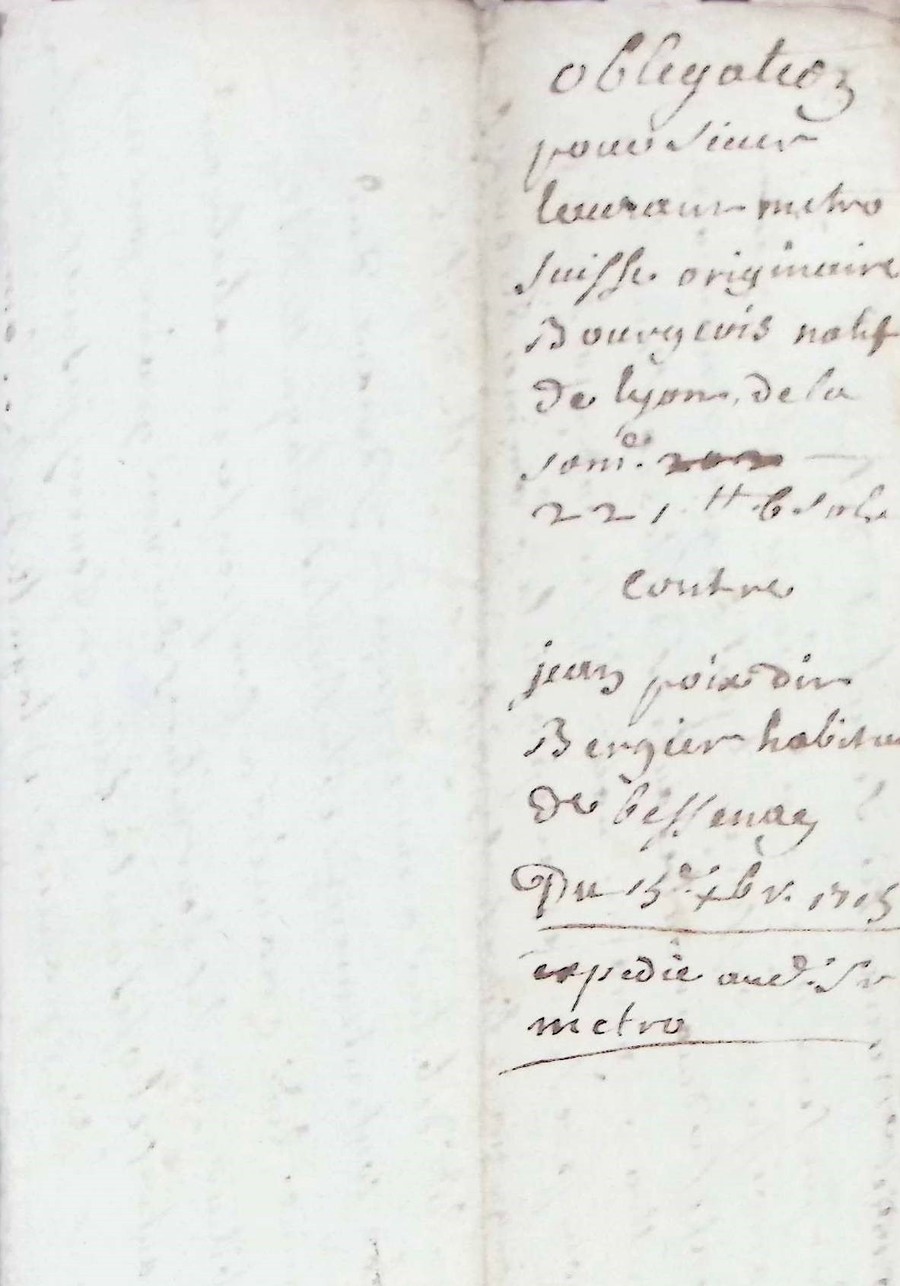 obligation
pour sieur
laurans metro
suisse originaire
Bourgeois natif
de lyon, de la
som.e
221 ₶ 6 sols
contre
jean poix din
Bergier habitan
de bessenay
Du 15e xbr. 1715
expedié aud. Sr
metro